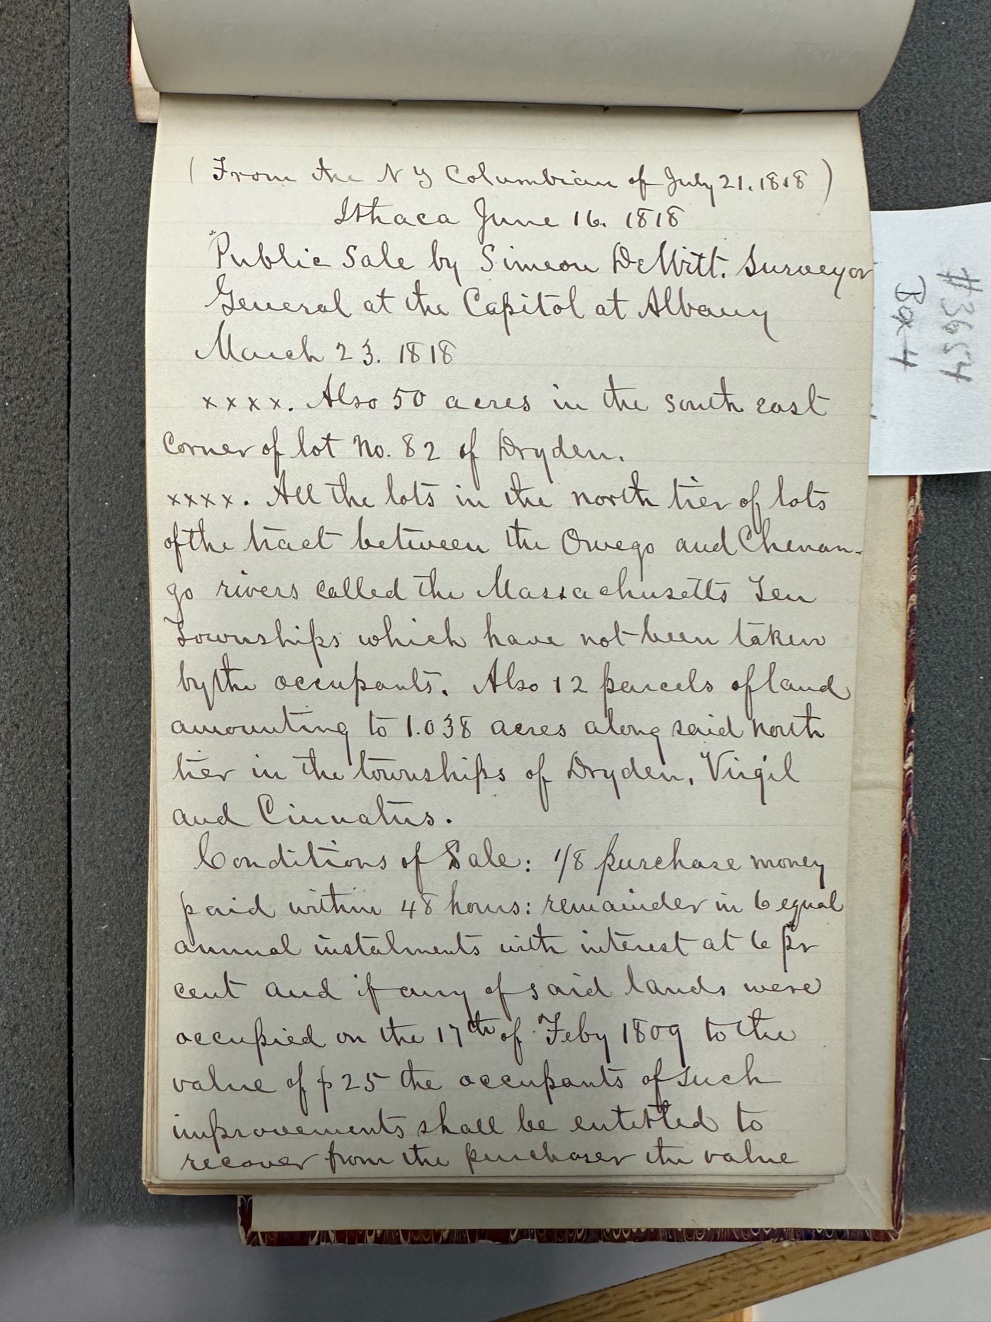 (From the N Y Columbian of July 21. 1818)
Ithaca June 16. 1818
Public Sale by Simeon DeWitt. Surveyor
General at the Capitol at Albany
March 23. 1818
xxxx. Also 50 acres in the south east
corner of lot No. 82 of Dryden.
xxxx. All the lots in the north tier of lots
of the tract between the Owego and Chenan-
go rivers called the Massachusetts Ten
Townships which have not been taken
by the occupants. Also 12 parcels of land
amounting to 1.038 acres along said north
tier in the townships of Dryden, Virgil
and Cinnatus.
Conditions of Sale: 1/8 purchase money
paid within 48 hours: remainder in 6 equal
annual instalments with interest at 6 pr
cent and if any of said lands were
occupied on the 17th of Feby 1809 to the
value of $25 the occupants of such
improvements shall be entitled to
recover from the purchaser the value
#3654
Box 4